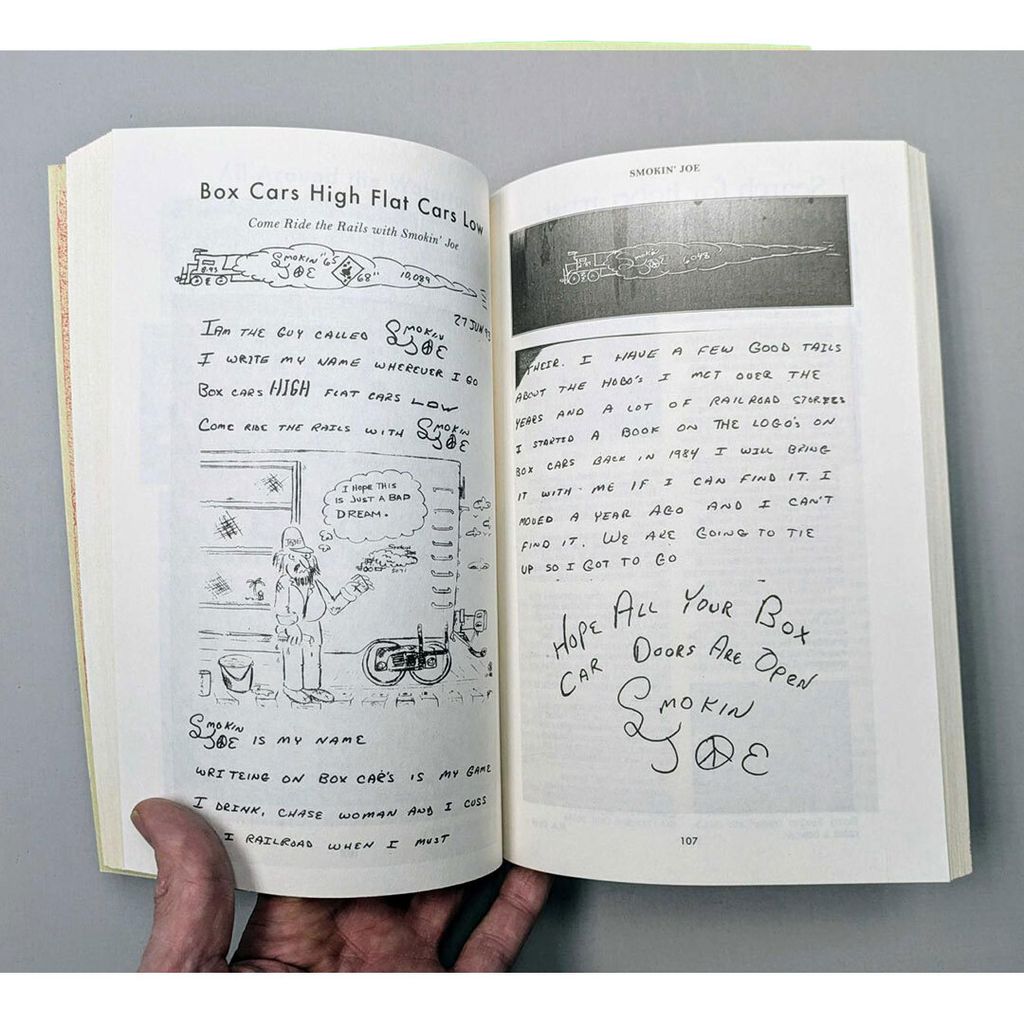 Box Cars High Flat Cars Low
Come Ride the Rails with Smokin' Joe
SMOKIN "65
JOE 68" 10,089
8-93
27 JUN 93
I AM THE GUY CALLED SMOKIN JOE
I WRITE MY NAME WHEREVER I GO
BOX CARS HIGH FLAT CARS LOW
COME RIDE THE RAILS WITH SMOKIN JOE
I HOPE THIS
IS JUST A BAD
DREAM.
SMOKIN JOE IS MY NAME
WRITEING ON BOX CAR'S IS MY GAME
I DRINK, CHASE WOMAN AND I CUSS
I RAILROAD WHEN I MUST
SMOKIN' JOE
6048
THEIR. I HAVE A FEW GOOD TAILS
ABOUT THE HOBO'S I MET OVER THE
YEARS AND A LOT OF RAILROAD STORIES
I STARTED A BOOK ON THE LOGO'S ON
BOX CARS BACK IN 1984 I WILL BRING
IT WITH ME IF I CAN FIND IT. I
MOVED A YEAR AGO AND I CAN'T
FIND IT. WE ARE GOING TO TIE
UP SO I GOT TO GO
HOPE ALL YOUR BOX
CAR DOORS ARE OPEN
SMOKIN
JOE
107